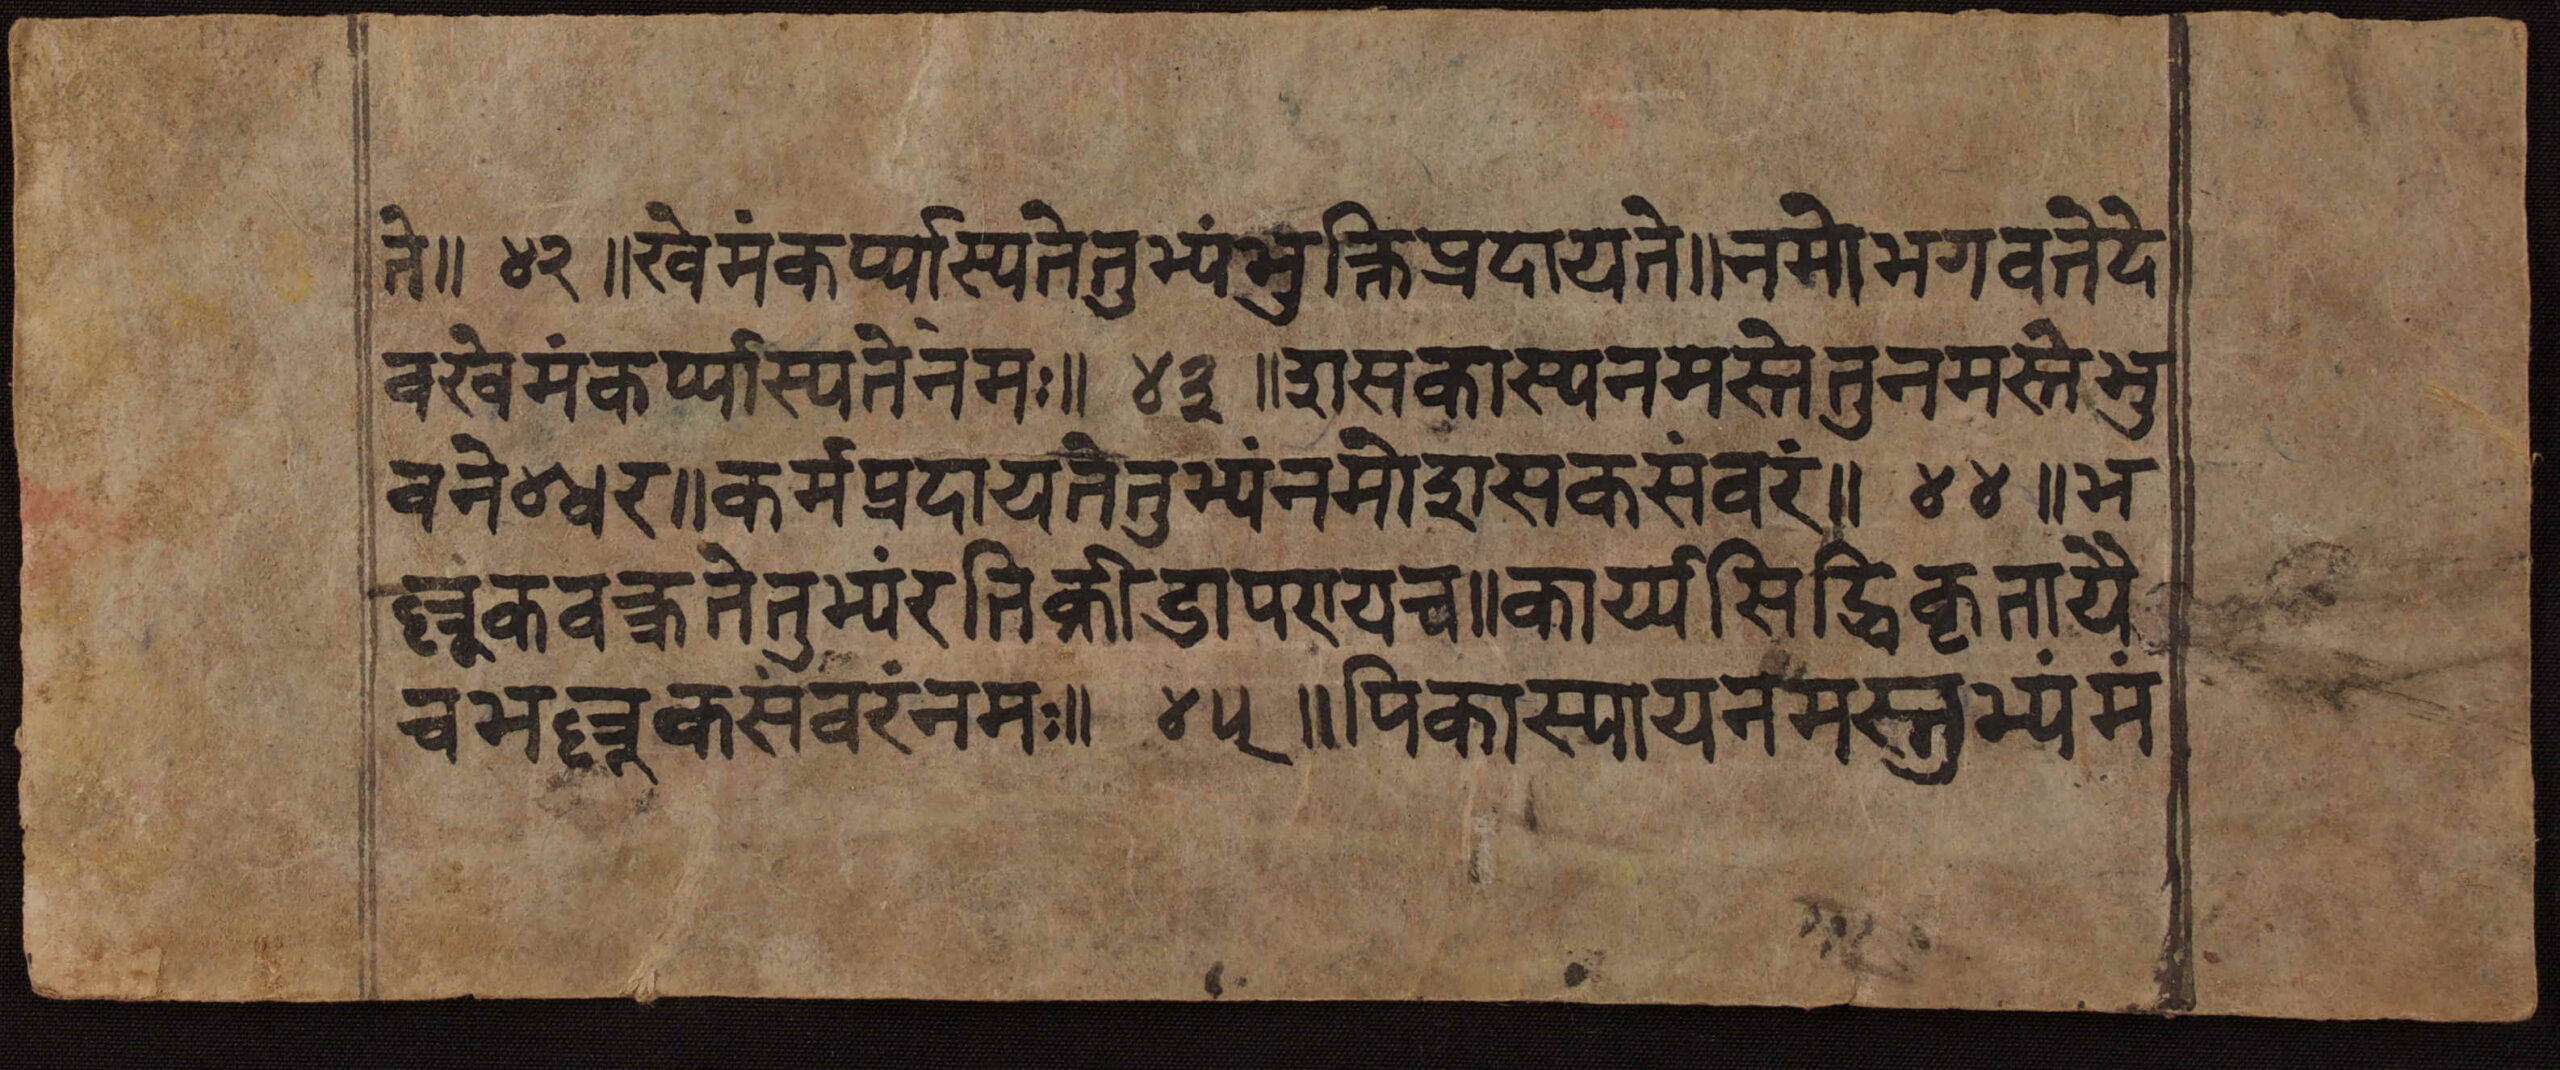 ते॥ ४२ ॥खेमंकर्प्यास्यतेतुभ्यंभुक्तिप्रदायते॥नमोभगवतेदे
वखेमंकर्प्यास्यतेनमः॥ ४३ ॥शसकास्यनमस्तेतुनमस्तेभु
वनेश्वर॥कर्मप्रदायतेतुभ्यंनमोशसकसंवरं॥ ४४ ॥भ
तेतुभ्यंरतिक्रीडापरायच॥कार्य्यसिद्धिकृतायै
संवरंनमः॥ ४५ ॥पिकास्यायनमस्तुभ्यंमं